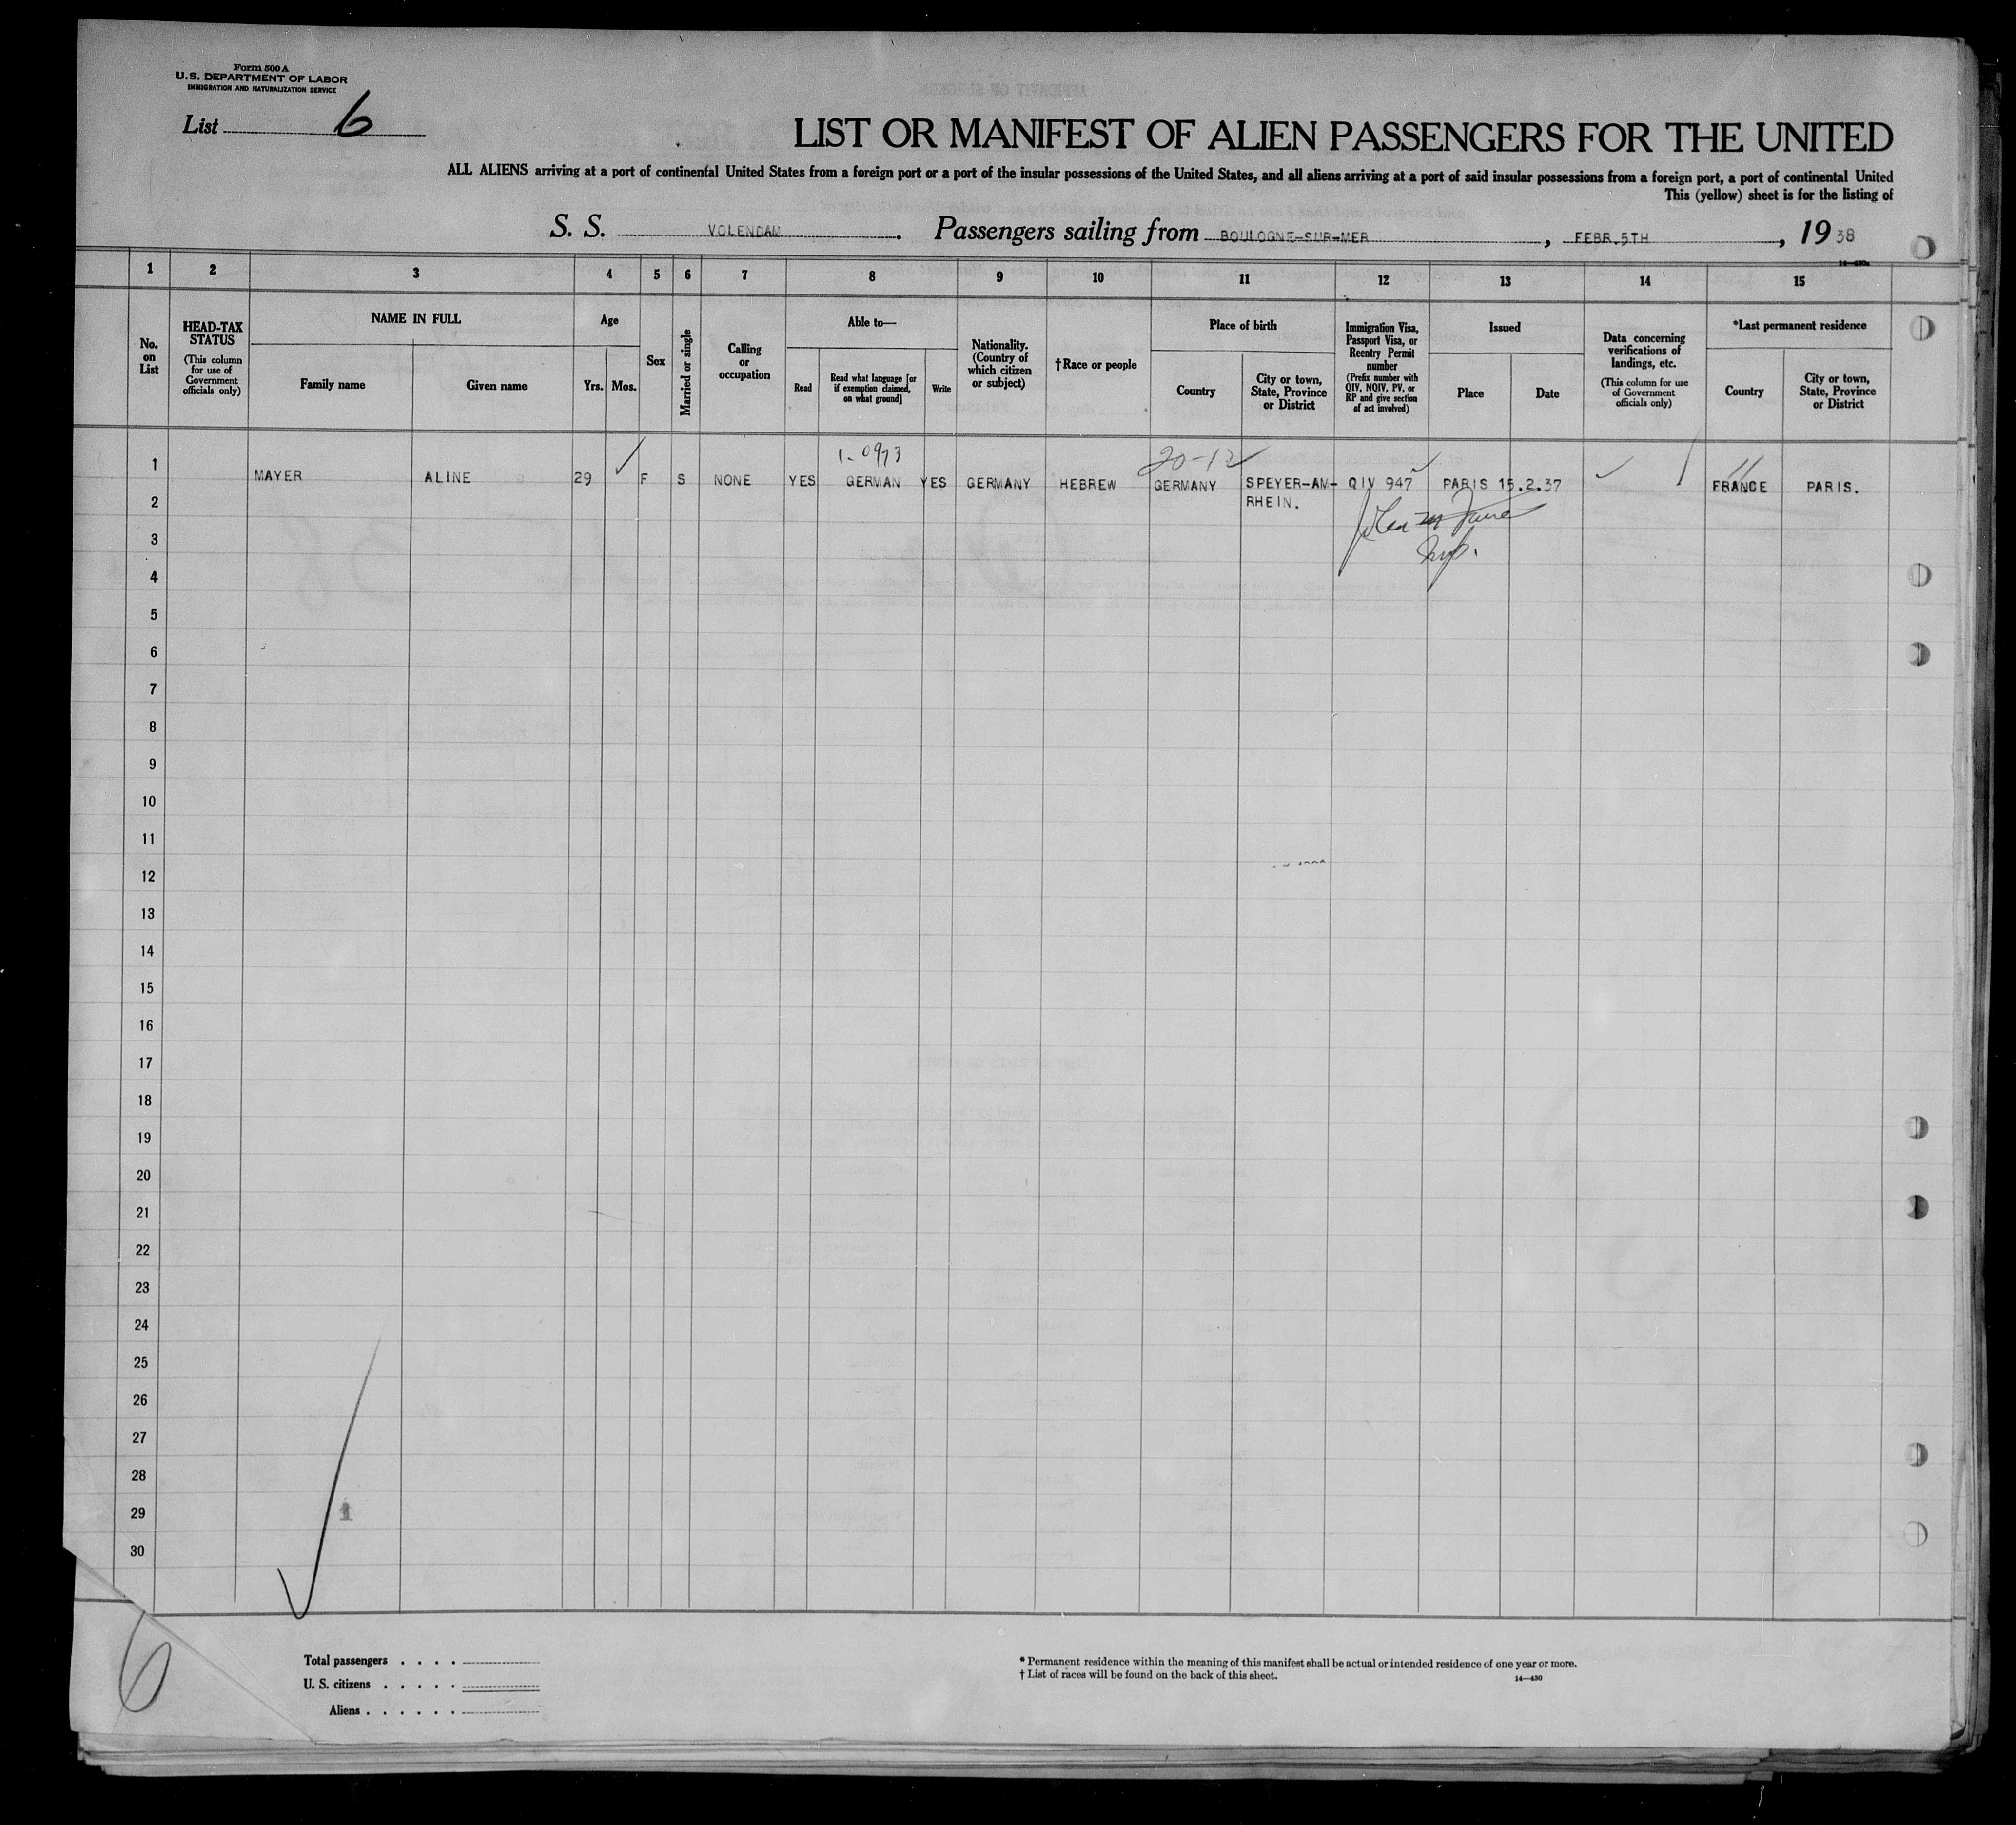 Form 500 A
U.S. DEPARTMENT OF LABOR
IMMIGRATION AND NATURALIZATION SERVICE
List 6
LIST OR MANIFEST OF ALIEN PASSENGERS FOR THE UNITED
ALL ALIENS arriving at a port of continental United States from a foreign port or a port of the insular possessions of the United States, and all aliens arriving at a port of said insular possessions from a foreign port, a port of continental United
This (yellow) sheet is for the listing of
S. S. VOLENDAM. Passengers sailing from BOULOGNE-SUR-MER, FEBR.5TH, 1938
14-430a
1 2 3 4 5 6 7 8 9 10 11 12 13 14 15
No. on List
HEAD-TAX STATUS
(This column for use of Government officials only)
NAME IN FULL
Family name
Given name
Age
Yrs. Mos.
Sex
Married or single
Calling or occupation
Able to—
Read
Read what language [or if exemption claimed, on what ground]
Write
Nationality. (Country of which citizen or subject)
†Race or people
Place of birth
Country
City or town, State, Province or District
Immigration Visa, Passport Visa, or Reentry Permit number
(Prefix number with QIV, NQIV, PV, or RP and give section of act involved)
Issued
Place
Date
Data concerning verifications of landings, etc.
(This column for use of Government officials only)
*Last permanent residence
Country
City or town, State, Province or District
20-12
1 MAYER ALINE 29 F S NONE YES GERMAN YES GERMANY HEBREW GERMANY SPEYER-AM- QIV 947 PARIS 15.2.37 FRANCE PARIS.
2 RHEIN.
3
4
5
6
7
8
9
10
11
12
13
14
15
16
17
18
19
20
21
22
23
24
25
26
27
28
29 1
30
6
Total passengers . . . .
U. S. citizens . . . . .
Aliens . . . . . .
* Permanent residence within the meaning of this manifest shall be actual or intended residence of one year or more.
† List of races will be found on the back of this sheet.
14—430